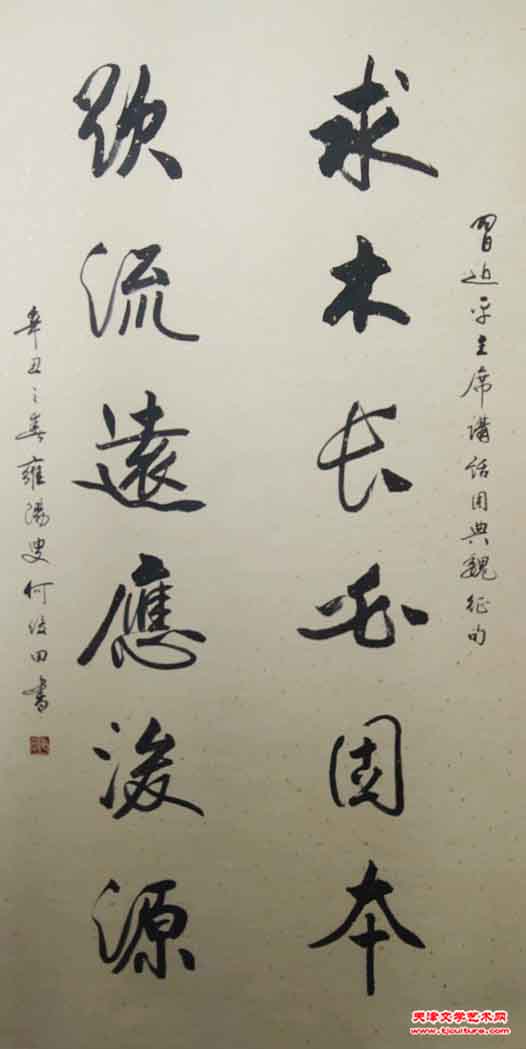 習近平主席講話用典魏征句
求木长必固本
欲流遠應浚源
辛丑之春雍陽叟何俊田書
天津文学艺术网
www.tjculture.com